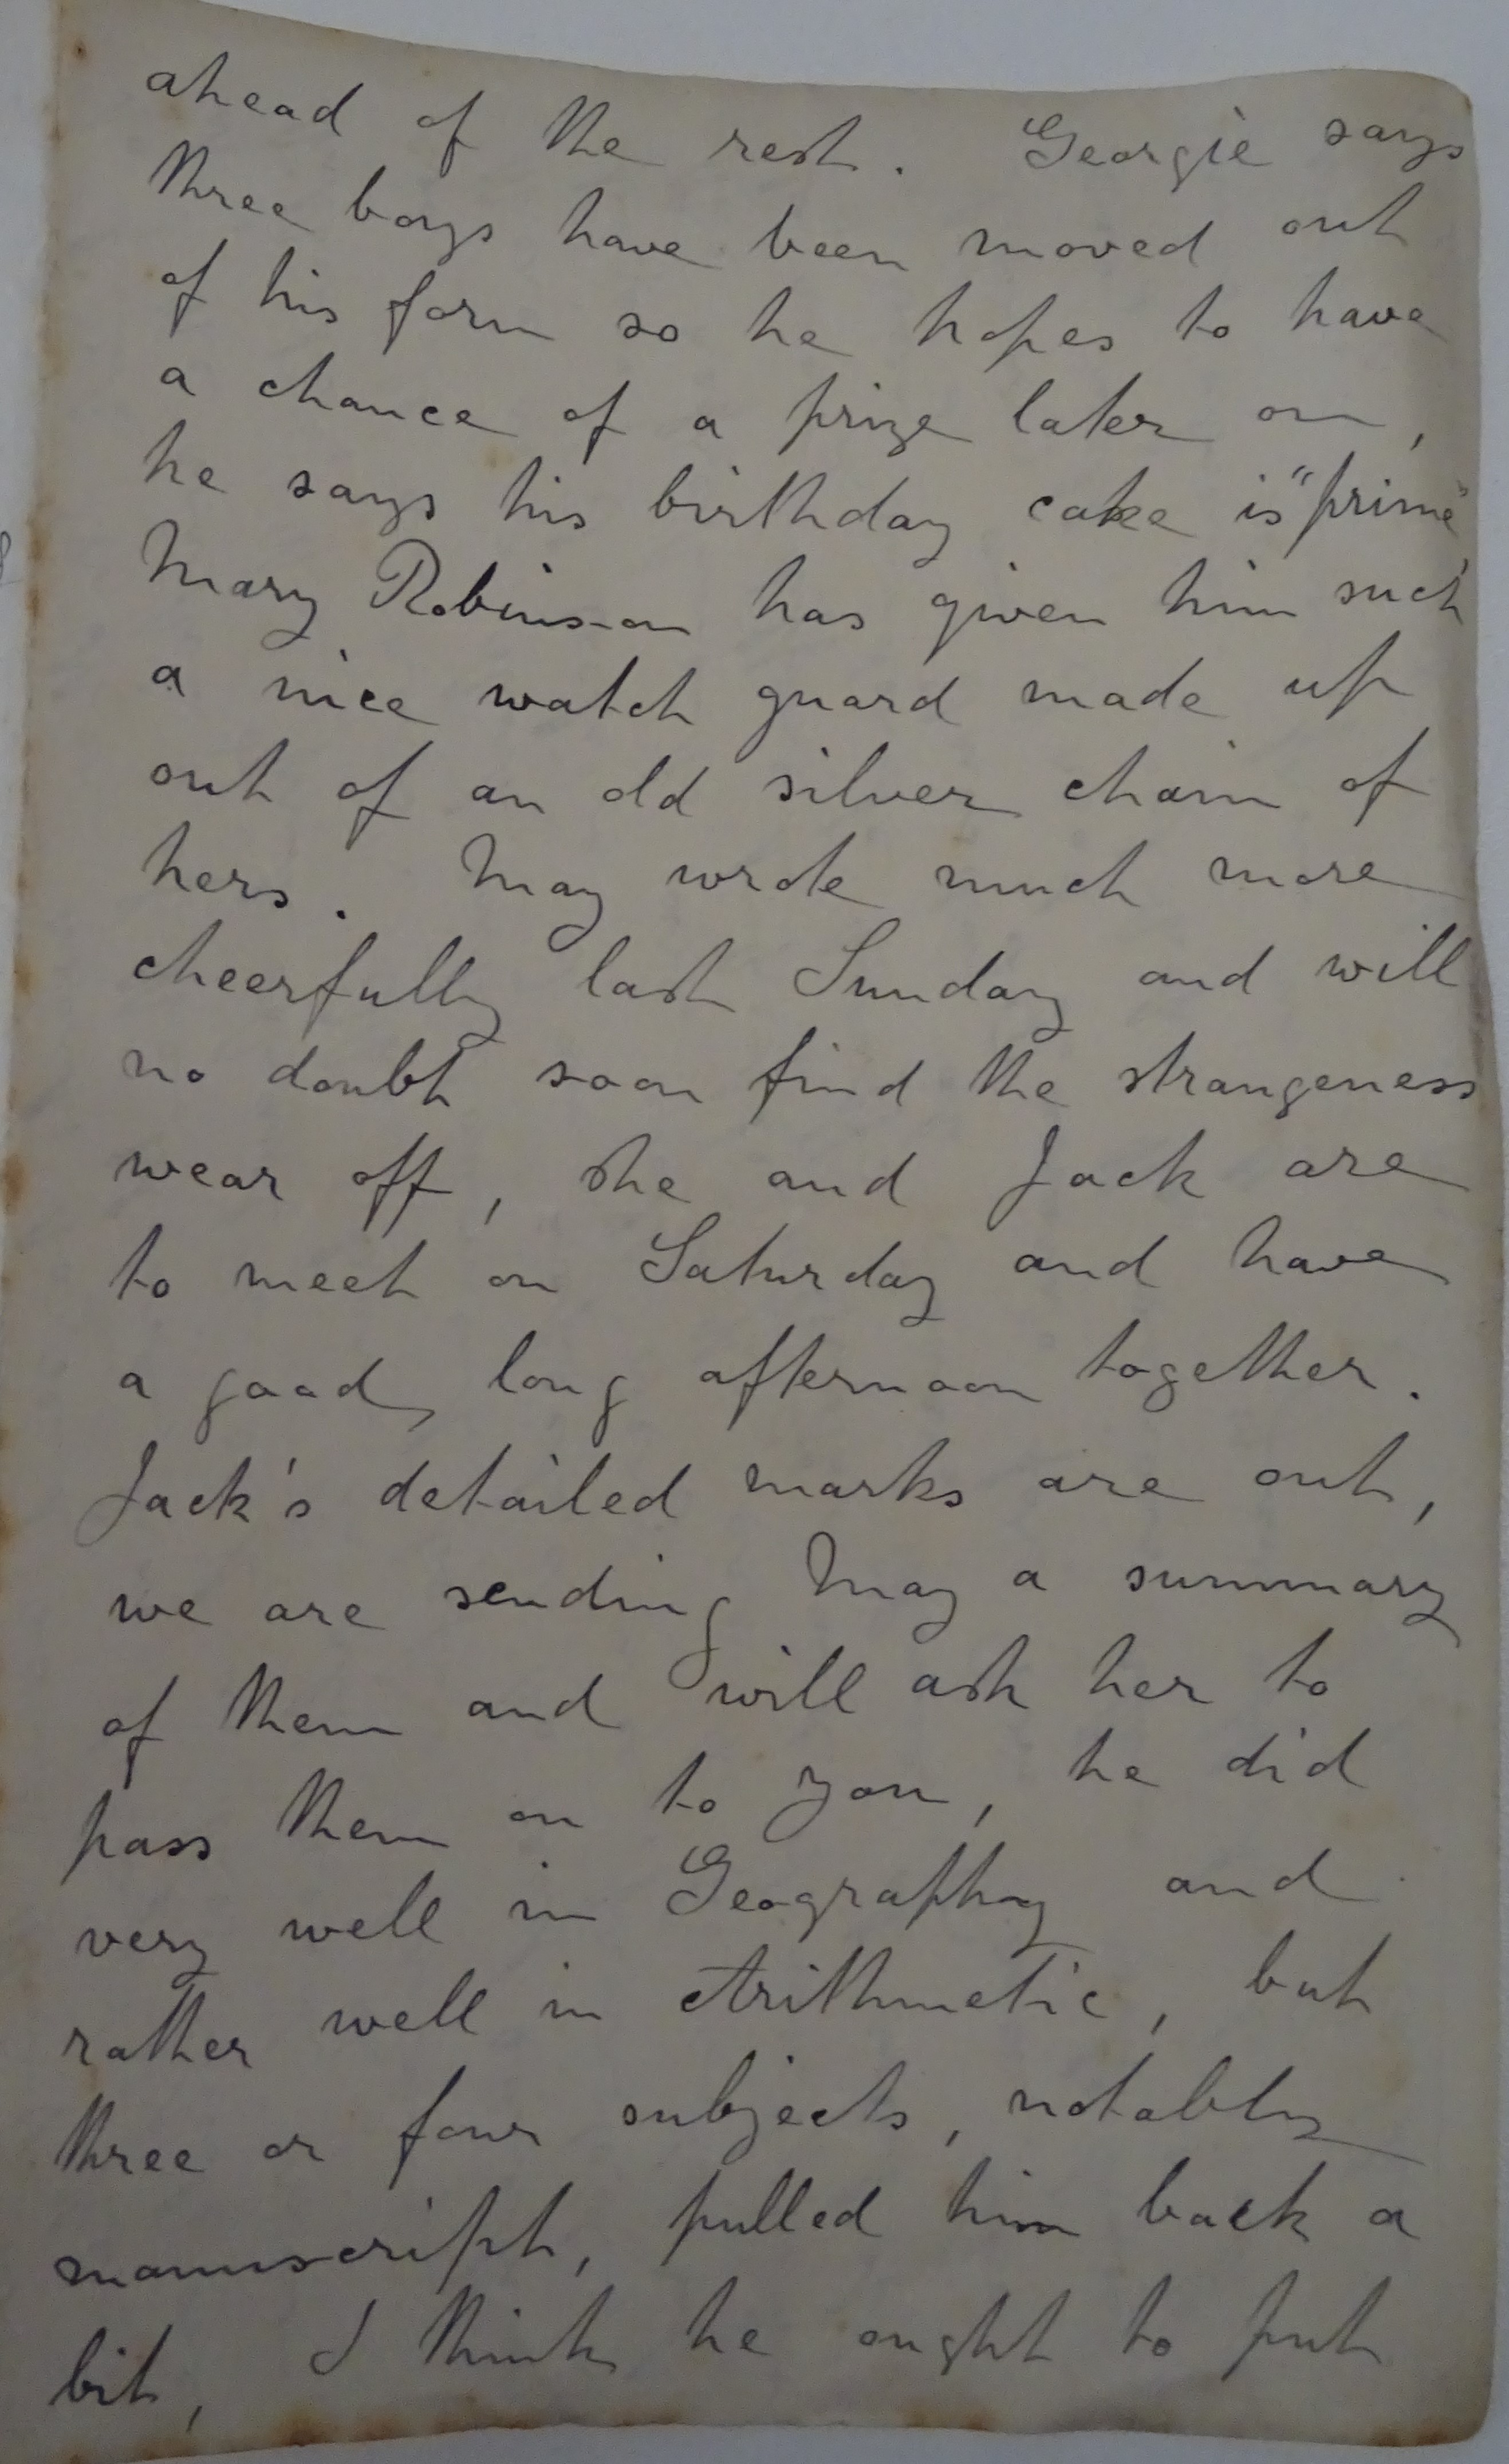 ahead of the rest. Georgie says
three boys have been moved out
of his form so he hopes to have
a chance of a prize later on,
he says his birthday cake is "prime",
Mary Robinson has given him such
a nice watch guard made up
out of an old silver chain of
hers. May wrote much more
cheerfully last Sunday and will
no doubt soon find the strangeness
wear off, she and Jack are
to meet on Saturday and have
a good, long afternoon together.
Jack's detailed marks are out,
we are sending May a summary
of them and will ask her to
pass them on to you, he did
very well in Geography and
rather well in Arithmetic, but
three or four subjects, notably
manuscript, pulled him back a
bit, I think he ought to put